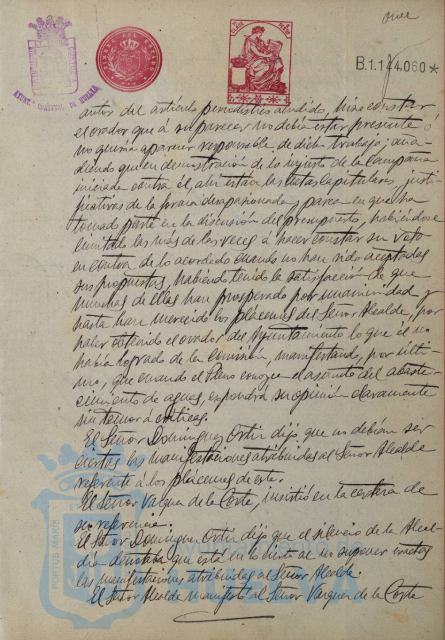 once
AYUNT. CONSTNAL. DE HUELVA
B.1.144.060*
autor del artículo periodístico aludido, hizo constar
el orador que á su parecer no debía estar presente ó
no quería aparecer responsable de dicho trabajo; aña-
diendo que en demostración de lo injusto de la campaña
iniciada contra él, ahí están las actas capitulares, justi-
ficativas de la forma desapasionada y parca en que ha
tomado parte en la discusión del presupuesto, habiéndose
limitado las más de las veces á hacer constar su voto
en contra de lo acordado cuando no han sido aceptadas
sus propuestas, habiendo tenido la satisfacción de que
muchas de ellas han prosperado por unanimidad y
hasta han merecido los plácemes del Señor Alcalde, por
haber obtenido el orador del Ayuntamiento lo que él no
había logrado de la Comisión, manifestando, por últi-
mo, que cuando el Pleno conozca el asunto del abaste-
cimiento de aguas, expondrá su opinión claramente
sin temor á críticas.
El Señor Domínguez Ortiz dijo que no debían ser
ciertas las manifestaciones atribuidas al Señor Alcalde
referente á los plácemes de este.
El Señor Vargas de la Corte, insistió en la certeza de
su referencia.
El Señor Domínguez Ortiz dijo que el silencio de la Alcal-
día denotaba que está en lo cierto al no suponer exactas
las manifestaciones atribuidas al Señor Alcalde.
El Señor Alcalde manifestó al Señor Vargas de la Corte
PORTUS MARIS